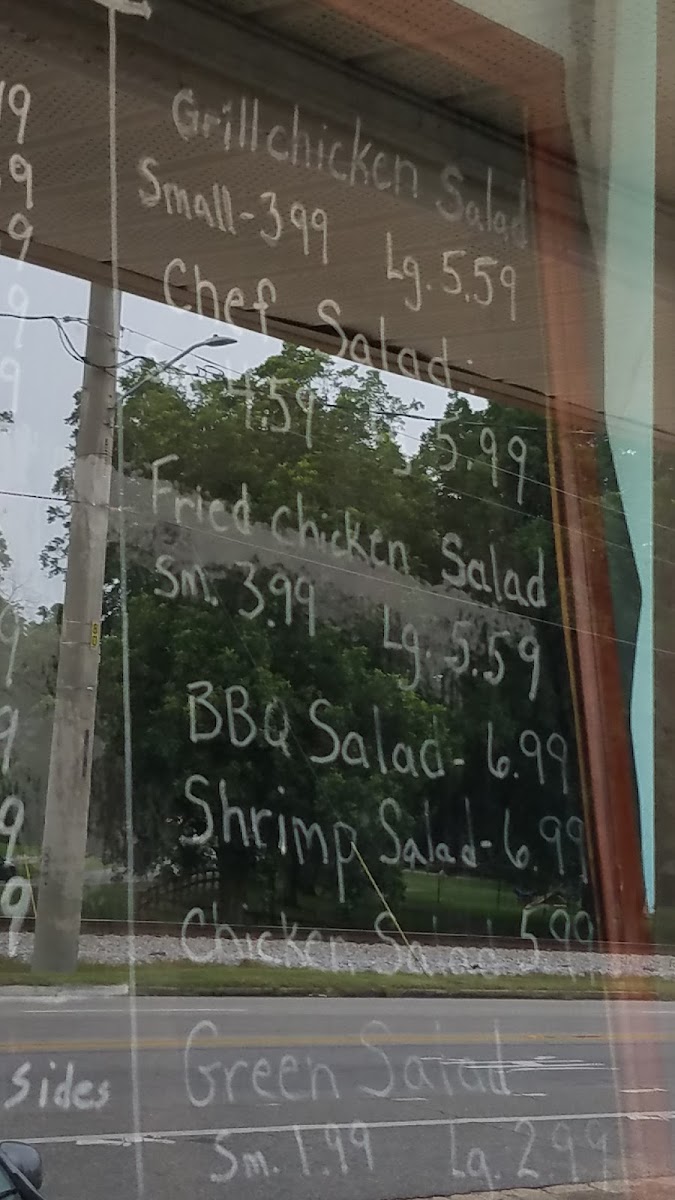 Grill chicken Salad
Small - 3.99 Lg. 5.59
Chef Salad:
4.59 5.99
Fried chicken Salad
Sm. 3.99 Lg. 5.59
BBQ Salad - 6.99
Shrimp Salad - 6.99
Chicken Salad 5.99
Green Salad
Sm. 1.99 Lg. 2.99
Sides